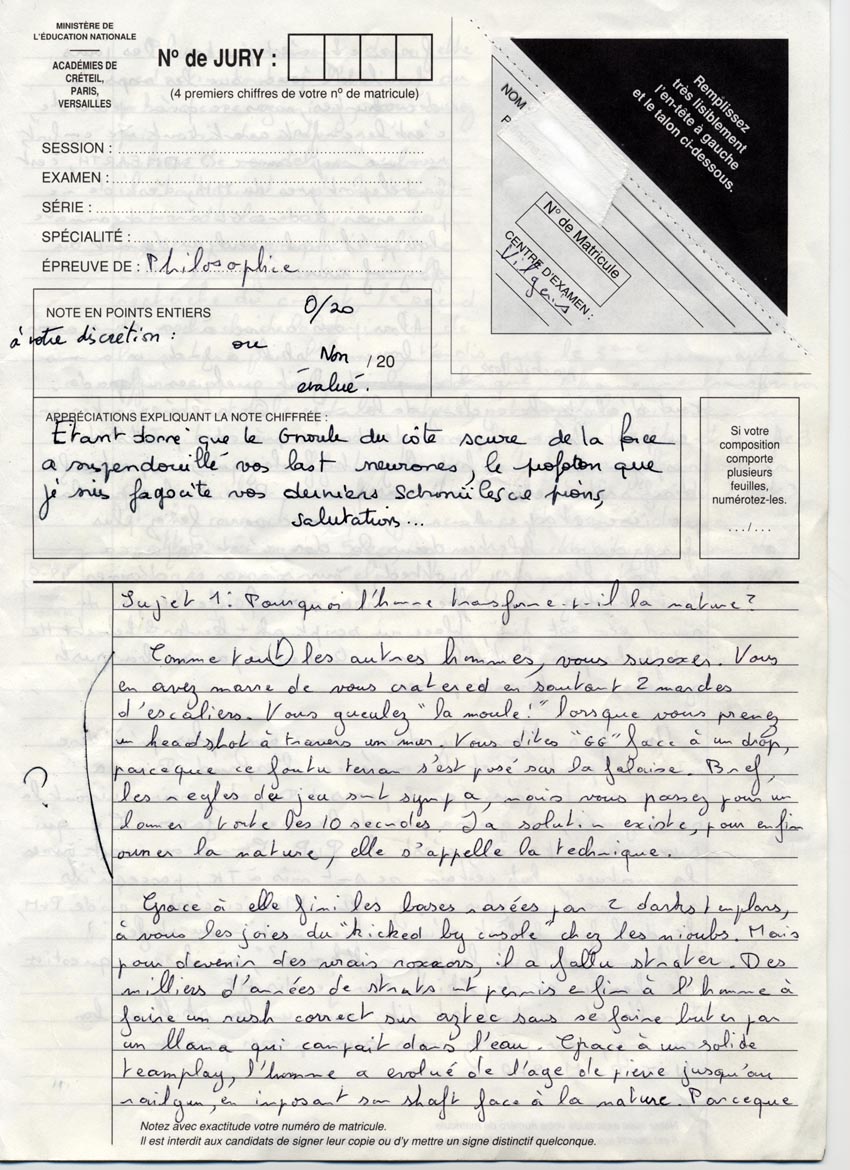 MINISTÈRE DE
L'ÉDUCATION NATIONALE
ACADÉMIES DE
CRÉTEIL,
PARIS,
VERSAILLES
N° de JURY :
(4 premiers chiffres de votre n° de matricule)
SESSION :
EXAMEN :
SÉRIE :
SPÉCIALITÉ :
ÉPREUVE DE : Philosophie
Remplissez
très lisiblement
l'en-tête à gauche
et le talon ci-dessous.
NOM
N° de Matricule
CENTRE D'EXAMEN :
NOTE EN POINTS ENTIERS
0/20
à votre discrétion :
ou
Non / 20
évalué.
APPRÉCIATIONS EXPLIQUANT LA NOTE CHIFFRÉE :
Etant donné que le Gnoule du côté scure de la force
a suspendouillé vos last neurones, le que
je suis fagocite vos derniers pions,
salutations...
Si votre
composition
comporte
plusieurs
feuilles,
numérotez-les.
.../...
Sujet 1 : Pourquoi l'homme transforme-t-il la nature ?
Comme tout les autres hommes, vous suxoxez. Vous
en avez marre de vous cratered en sautant 2 marches
d'escaliers. Vous gueulez "la moule !" lorsque vous prenez
un headshot à travers un mur. Vous dites "GG" face à un drop,
parceque ce foutu terran s'est posé sur la falaise. Bref,
?
les regles du jeu sont sympa, mais vous passez pour un
lamer toute les 10 secondes. La solution existe, pour enfin
owner la nature, elle s'appelle la technique.
Grace à elle fini les bases rasées par 2 darks templars,
à vous les joies du "kicked by console" chez les nioubs. Mais
pour devenir des vrais roxxors, il a fallu strater. Des
milliers d'années de strats ont permis enfin à l'homme à
faire un rush correct sur aztec sans se faire buter par
un llama qui campait dans l'eau. Grace à un solide
teamplay, l'homme a evolué de l'age de pierre jusqu'au
railgun, en imposant son shaft face à la nature. Parceque
Notez avec exactitude votre numéro de matricule.
Il est interdit aux candidats de signer leur copie ou d'y mettre un signe distinctif quelconque.